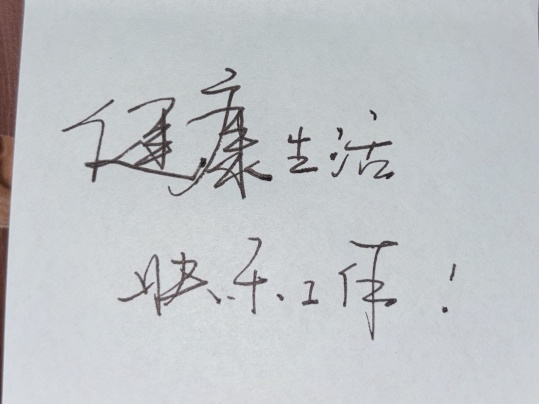 健康生活
快乐工作！